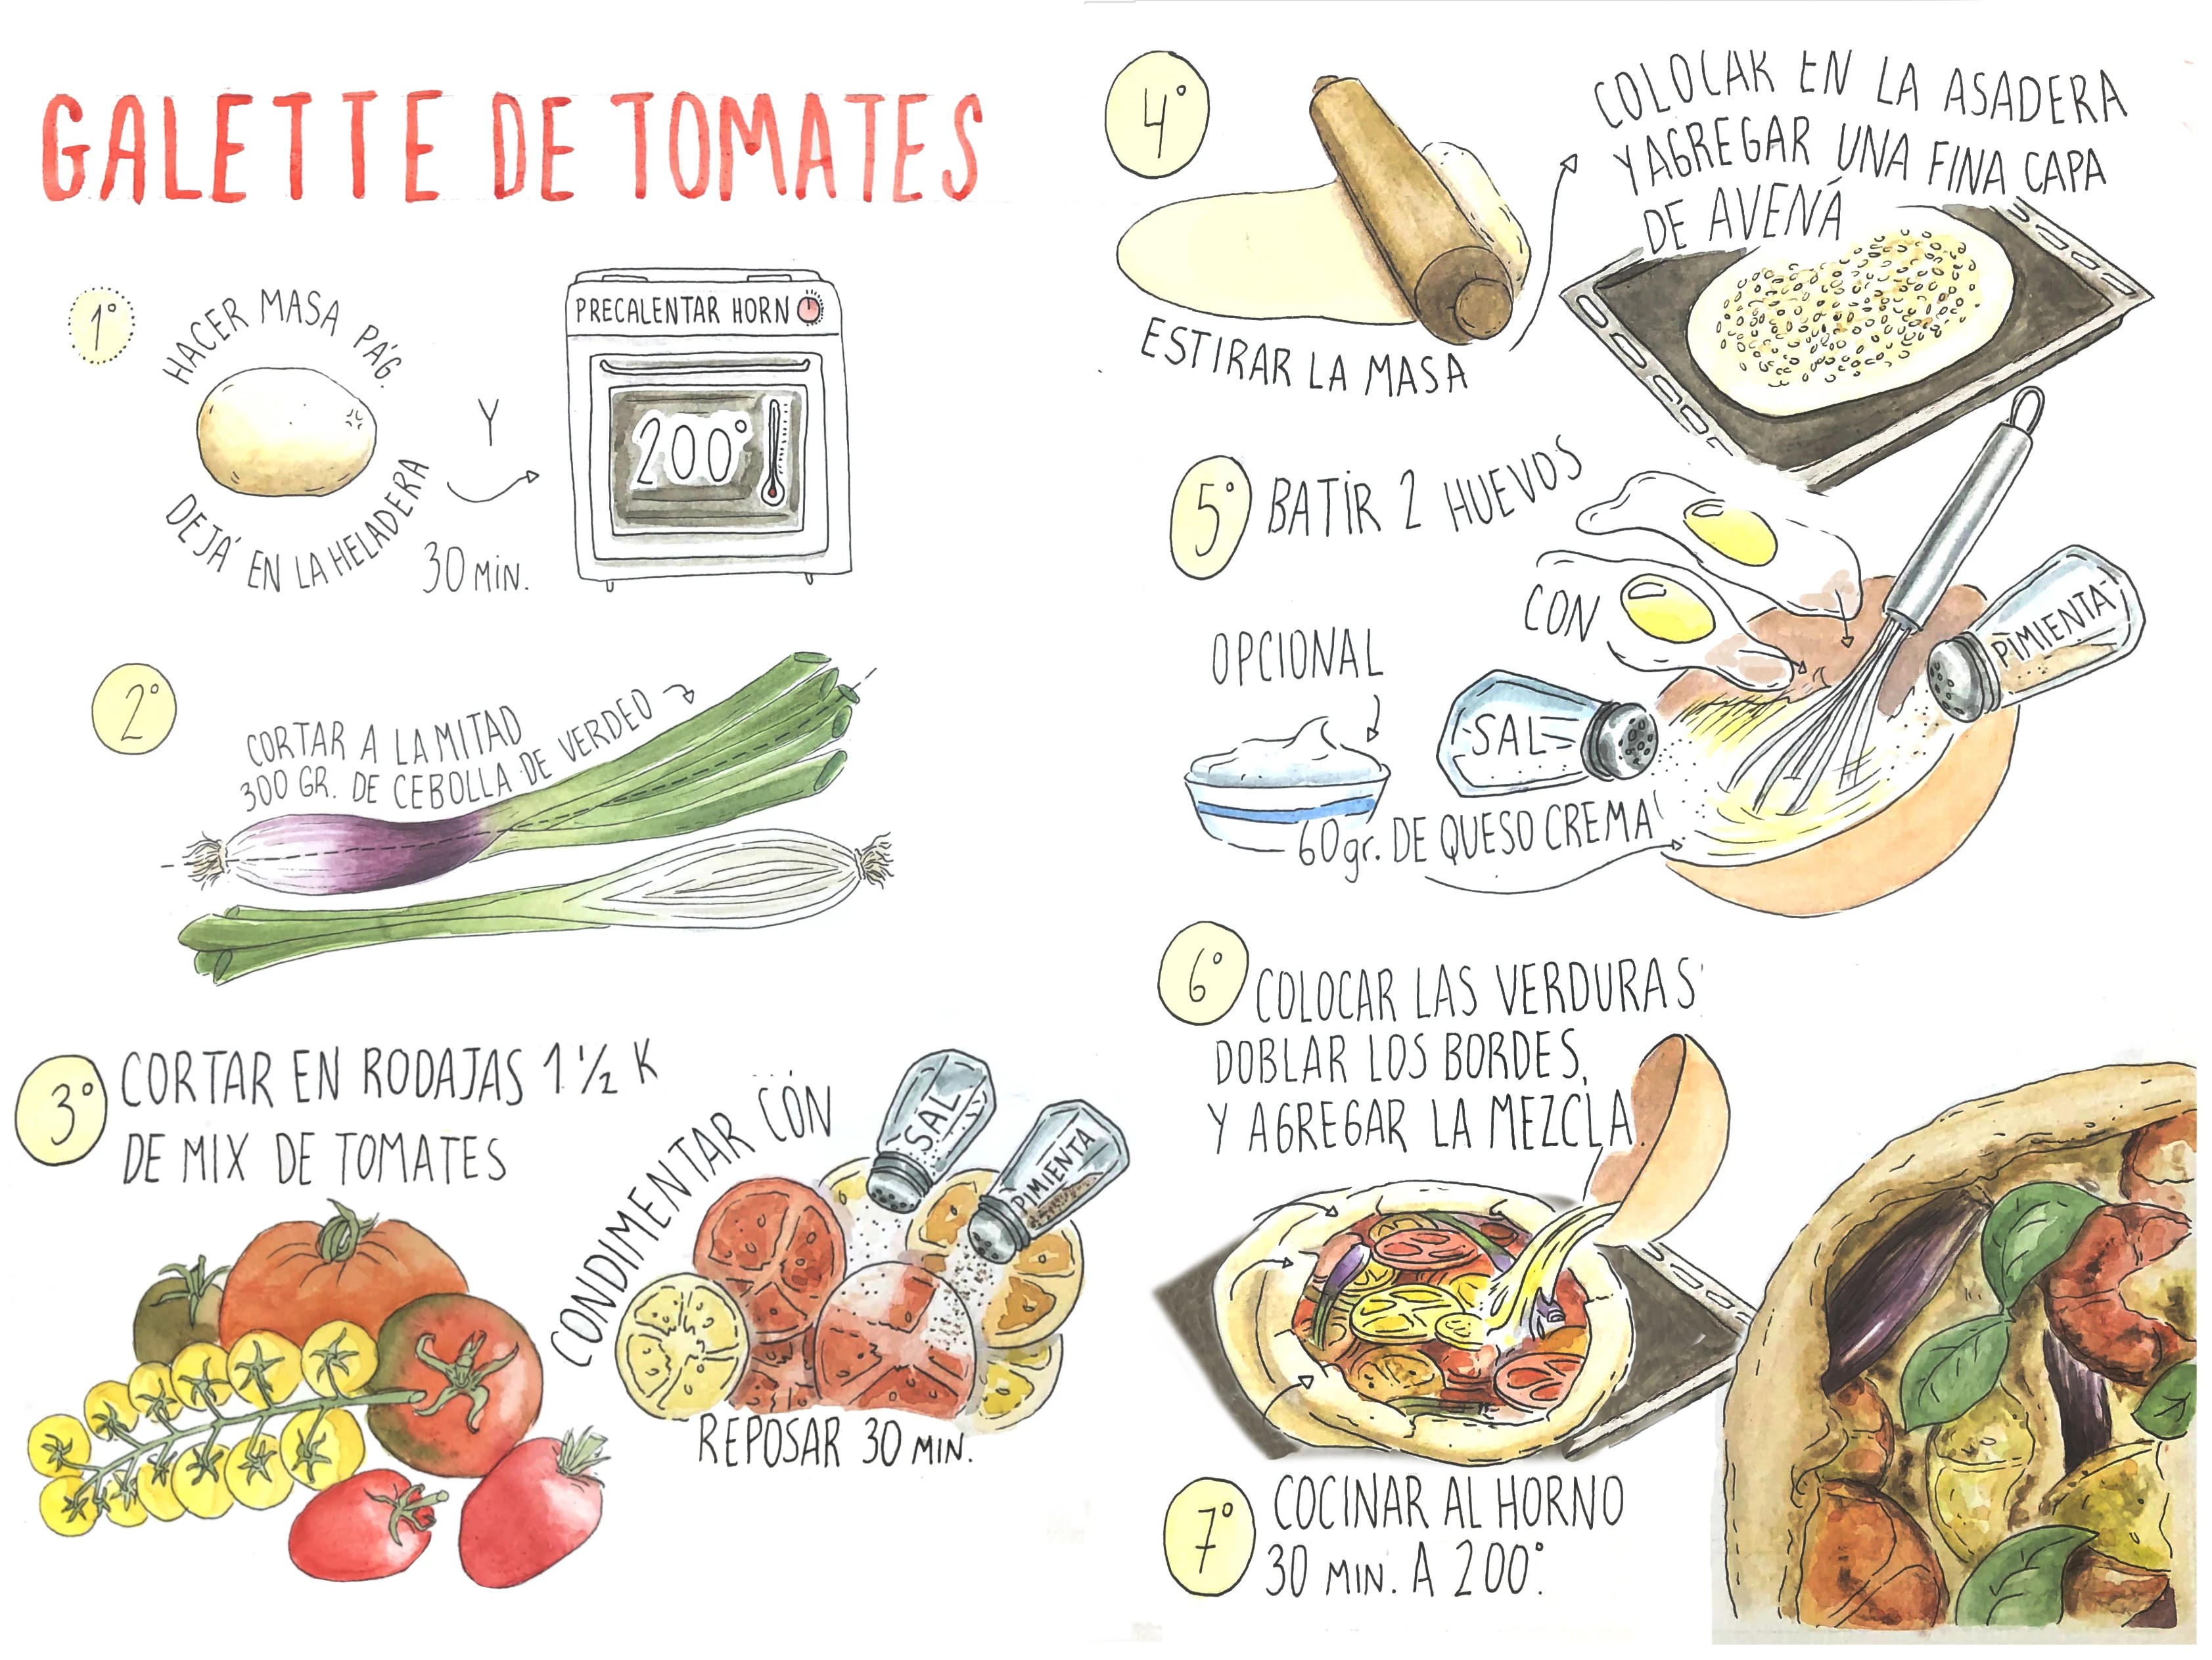 GALETTE DE TOMATES
1°
HACER MASA PÁG.
DEJÁ EN LA HELADERA
30 MIN.
Y
PRECALENTAR HORNO
200°
2°
CORTAR A LA MITAD
300 GR. DE CEBOLLA DE VERDEO
3°
CORTAR EN RODAJAS 1 1/2 K
DE MIX DE TOMATES
CONDIMENTAR CON
SAL
PIMIENTA
REPOSAR 30 MIN.
4°
ESTIRAR LA MASA
COLOCAR EN LA ASADERA
Y AGREGAR UNA FINA CAPA
DE AVENA
5°
BATIR 2 HUEVOS
CON
SAL
PIMIENTA
OPCIONAL
60 gr. DE QUESO CREMA
6°
COLOCAR LAS VERDURAS
DOBLAR LOS BORDES,
Y AGREGAR LA MEZCLA.
7°
COCINAR AL HORNO
30 MIN. A 200°.